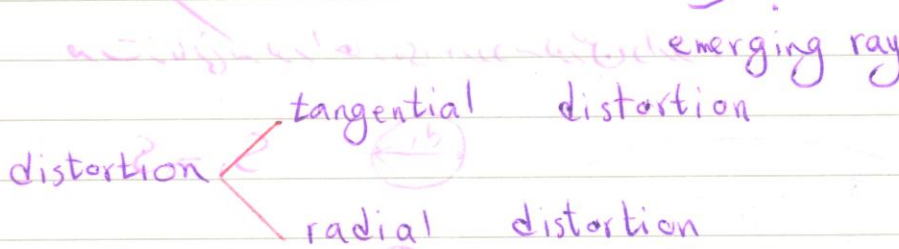 emerging ray
tangential distortion
distortion
radial distortion